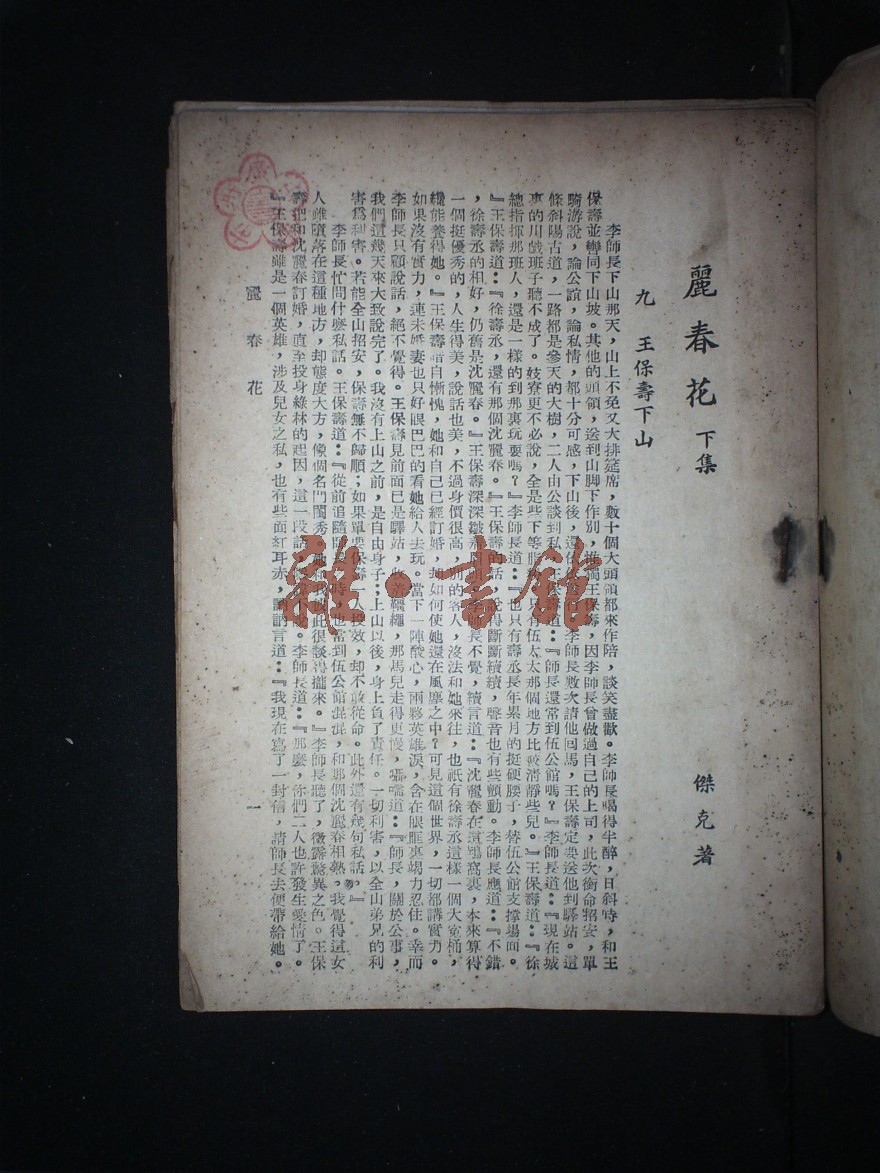 麗春花 下集
傑克著
九 王保壽下山
李師長下山那天，山上不免又大排筵席，數十個大頭領都來作陪，談笑盡歡。李師長喝得半醉，日斜時，和王
保壽並轡同下山坡。其他的頭領，送到山脚下作別，惟獨王保壽，因李師長曾做過自己的上司，此次銜命招安，單
騎游說，論公誼，論私情，都十分可感，下山後，還李師長數次請他回馬，王保壽定要送他到驛站。這
條斜陽古道，一路都是參天的大樹，二人由公談到私，王保壽道：『師長還常到伍公館嗎？』李師長道：『現在城
裏的川戲班子聽不成了。妓寮更不必說，全是些下等只有伍太太那個地方比較清靜些兒。』王保壽道：『徐
總指揮那班人，還是一樣的到那裏玩耍嗎？』李師長道：『也只有壽丞長年累月的挺硬腰子，替伍公館支撐場面。
『王保壽道：『徐壽丞，還有那個沈麗春。』王保壽的話，說得斷斷續續，聲音也有些顫動。李師長應道：『不錯
，徐壽丞的相好，仍舊是沈麗春。』王保壽深深皺長不覺，續言道：『沈麗春在這鴇窩裏，本來算得
一個挺優秀的，人生得美，說話也美，不過身價很高，別的客人，沒法和她來往，也祇有徐壽丞這樣一個大寃桶，
纔能養得她。』王保壽暗自慚愧，她和自己已經訂婚，却如何使她還在風塵之中？可見這個世界，一切都講實力。
如果沒有實力，連未婚妻也只好眼巴巴的看她給人去玩。當下一陣酸心，兩夥英雄淚，含在眼眶裏竭力忍住。幸而
李師長只顧說話，絕不覺得。王保壽見前面已是驛站，韁繩，那馬兒走得更慢，囁嚅道：『師長，關於公事，
我們這幾天來大致說完了。我沒有上山之前，是自由身子；上山以後，身上負了責任。一切利害，以全山弟兄的利
害爲利害。若能全山招安，保壽無不歸順；如果單要保壽一人投效，却不敢從命。此外還有幾句私話。』
李師長忙問什麼私話。王保壽道：『從前追隨師長時，也常到伍公館混混，和那個沈麗春相熟。我覺得這女
人雖墮落在這種地方，却態度大方，像個名門閨秀。她此很談得攏來。』李師長聽了，微露驚異之色。王保
壽把和沈麗春訂婚，直至投身綠林的起因，這一段話，李師長道：『那麼，你們二人也許發生愛情了。
『王保壽雖是一個英雄，涉及兒女之私，也有些面紅耳赤，訥訥言道：『我現在寫了一封信，請師長去便帶給她。
麗春花 一
雜·書館